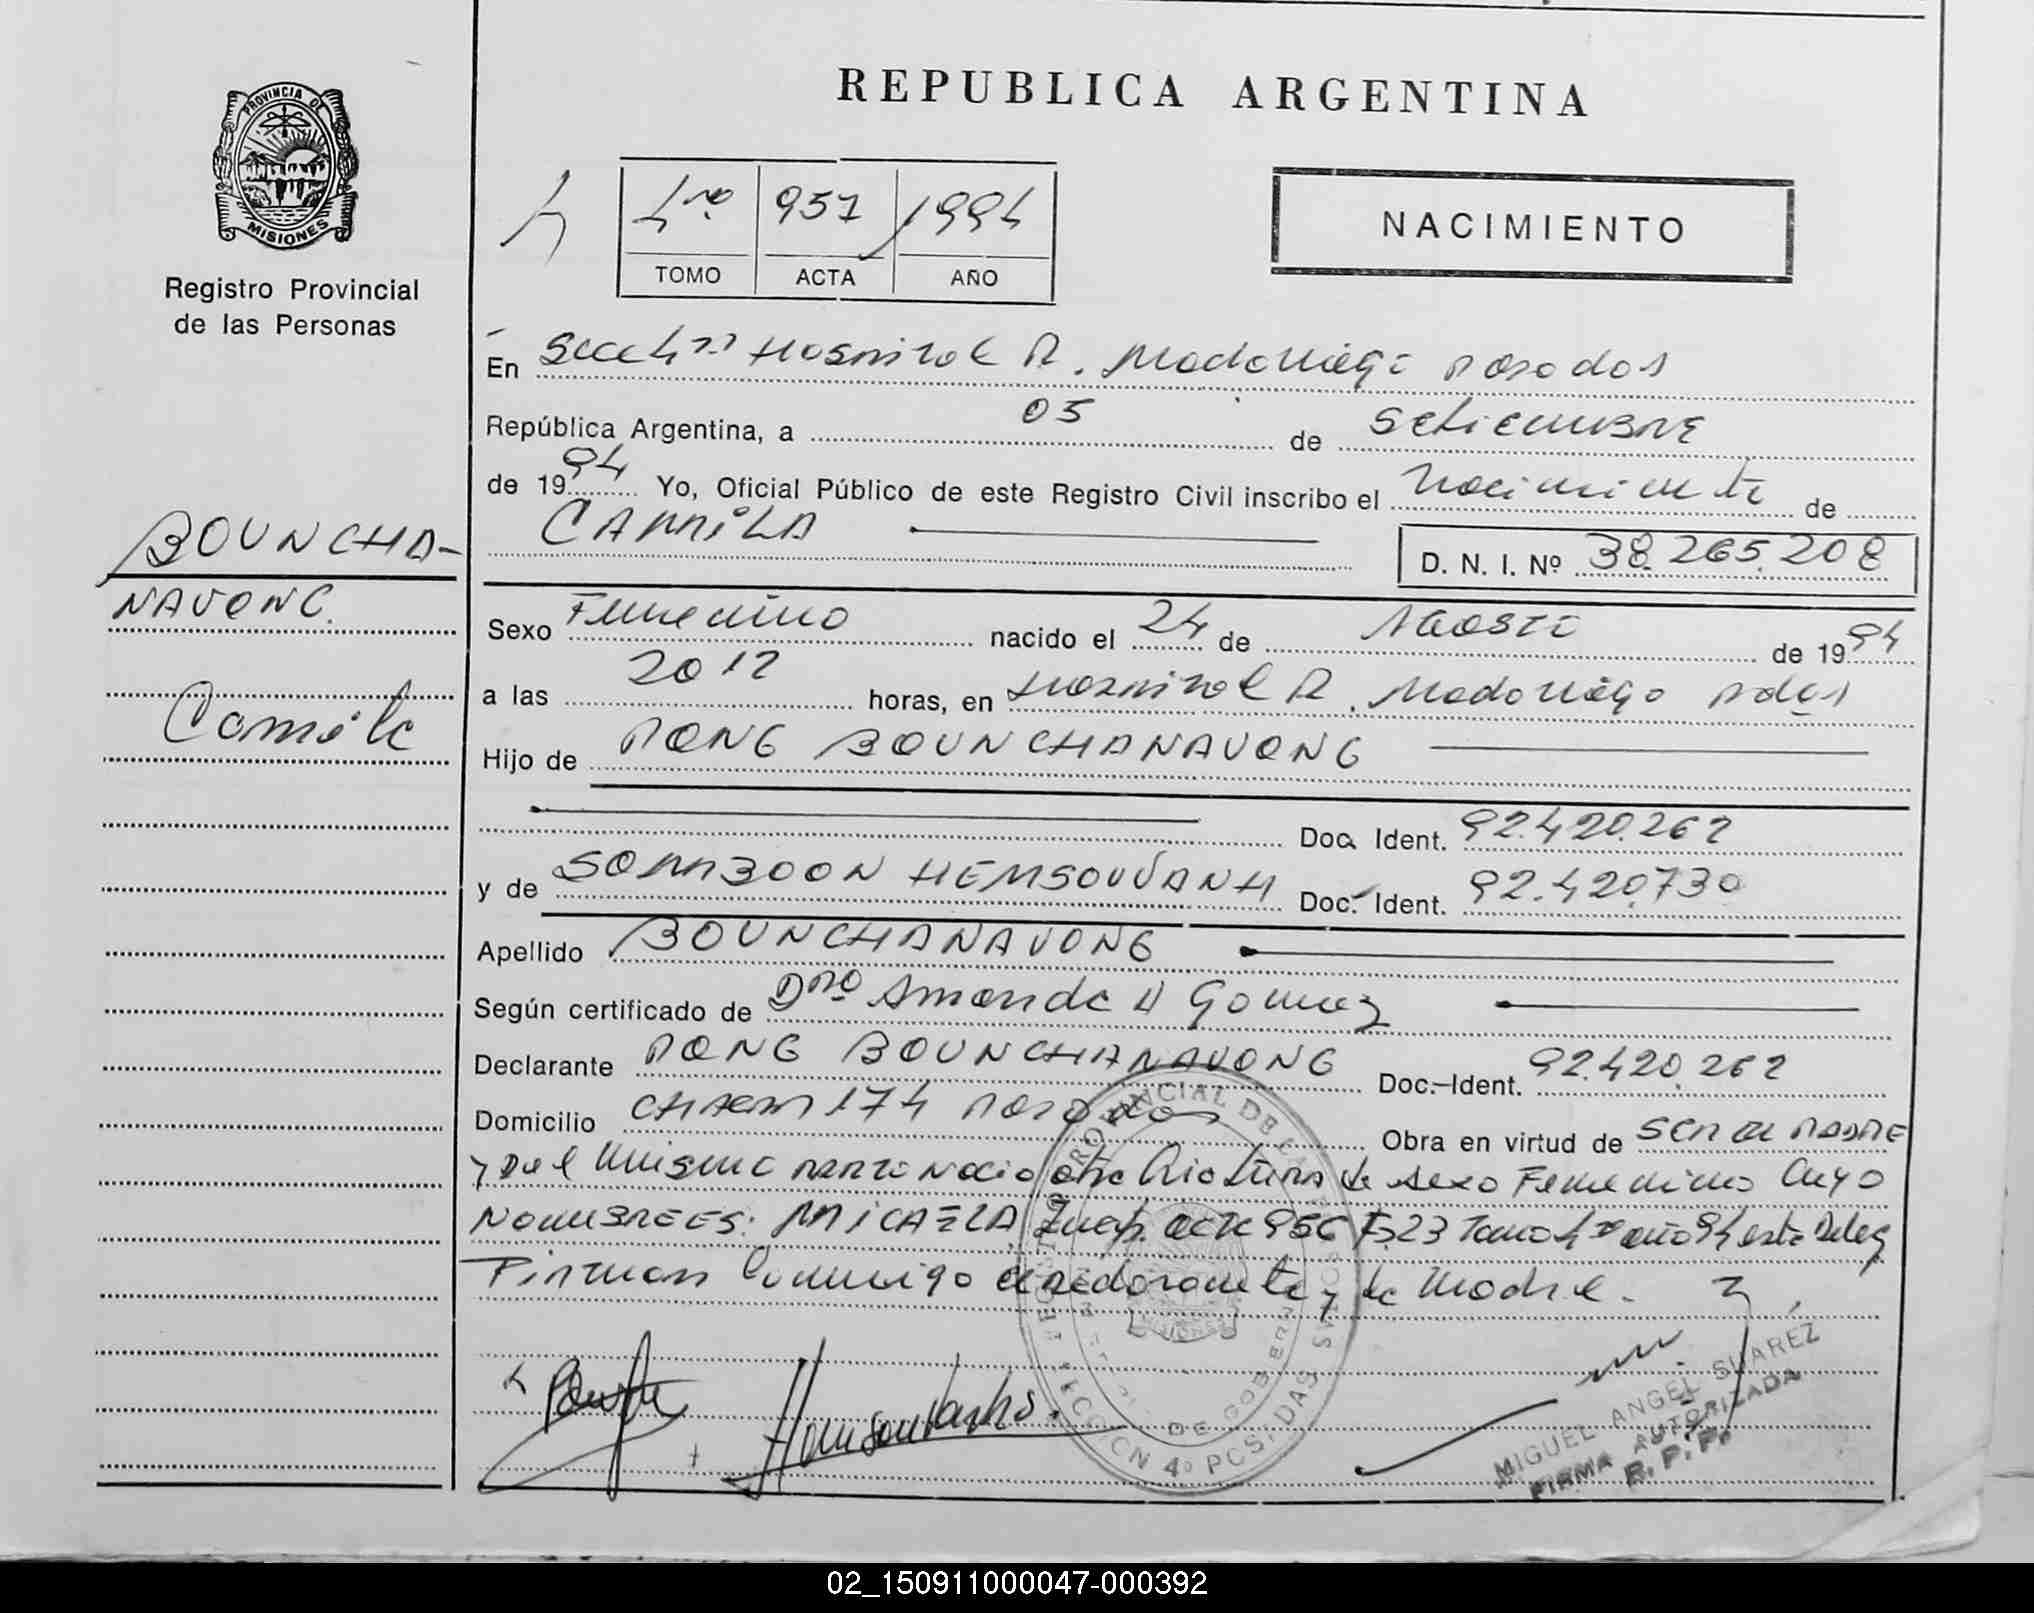 REPUBLICA ARGENTINA
PROVINCIA DE
MISIONES
Registro Provincial
de las Personas
4 4to 957 1994
TOMO ACTA AÑO
NACIMIENTO
En Secc 4ta Hospital R. Madariaga Posadas
República Argentina, a 05 de Setiembre
de 1994 Yo, Oficial Público de este Registro Civil inscribo el Nacimiento de
CAMILA
D. N. I. Nº 38.265.208
BOUNCHA-
NAVONG.
Camila
Sexo Femenino nacido el 24 de Agosto de 1994
a las 2012 horas, en Hospital R. Madariaga Pdas
Hijo de PONG BOUNCHANAVONG
Doc. Ident. 92.420.262
y de SOMBOON HEMSOUVANH Doc. Ident. 92.420.730
Apellido BOUNCHANAVONG
Según certificado de Dra Amanda Gomez
Declarante PONG BOUNCHANAVONG Doc.-Ident. 92.420.262
Domicilio 174 Posadas Obra en virtud de SER EL PADRE
y Del Mismo parto Nacio otra Criatura de sexo Femenino Cuyo
NOMBRE ES: MICAELA Insp. acta 956 F 23 Tomo 4to año 94 esta Deleg
Firman Conmigo el declarante y la Madre.
REGISTRO PROVINCIAL DE LAS PERSONAS
SECCION 4º POSADAS
MISIONES
DE GOBIERNO
MIGUEL ANGEL SUAREZ
FIRMA AUTORIZADA
R. P. P.
02_150911000047-000392